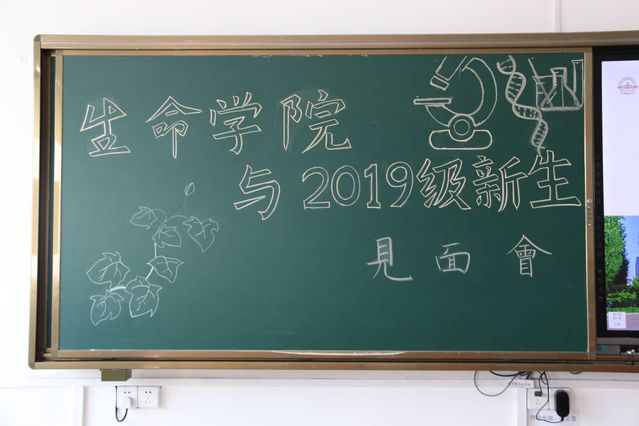 生命学院
与2019级新生
見面會